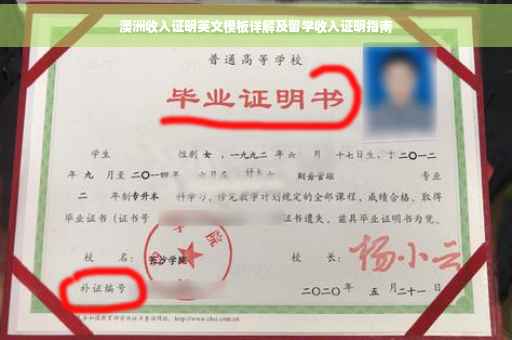 澳洲收入证明英文模板详解及留学收入证明指南
普通高等学校
毕业证明书
学生 性别 女，一九九二年 六 月 十七日生，于 二〇一二
年 九 月至 二〇一四 年 六月在 财务管理 专业
二 年制 专升本 科学习，修完教学计划规定的全部课程，成绩合格，取得
毕业证书（证书号 证书遗失，兹具毕业证明书为凭。
校 名：长沙学院 校 长：杨小云
补证编号 二〇二〇年 五 月 二十一日